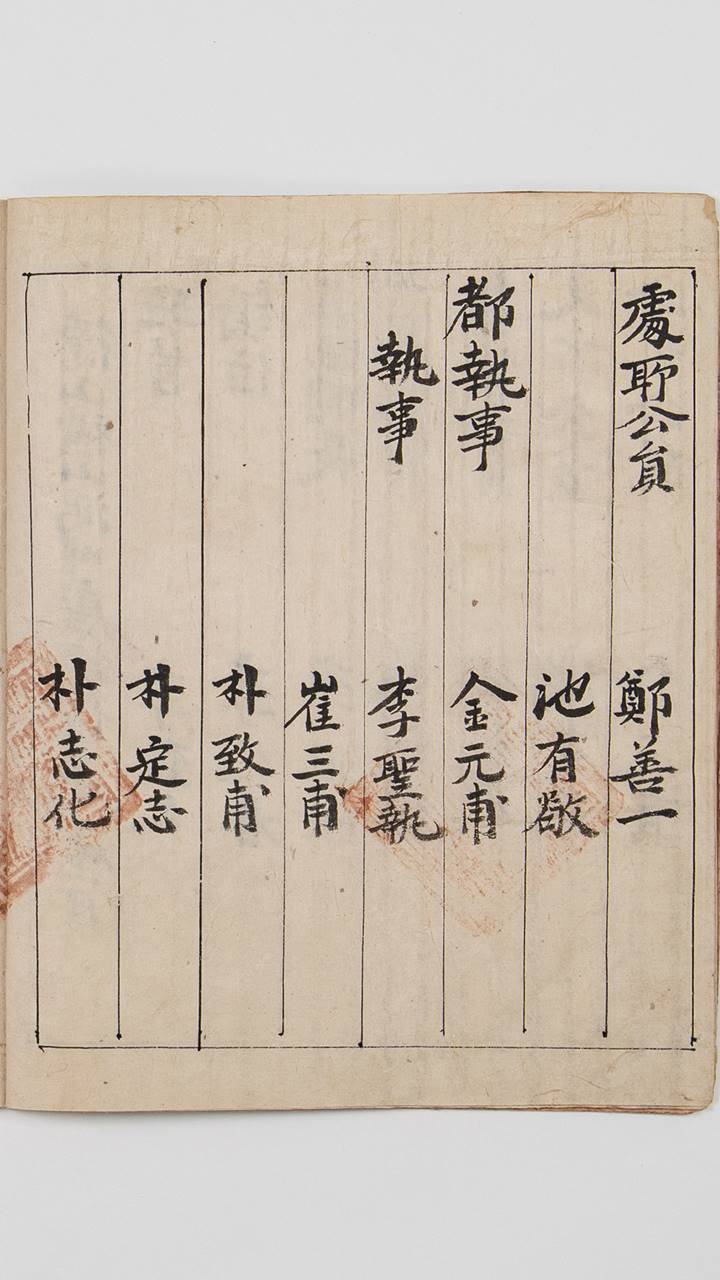 處所公員 鄭善一
池有敬
都執事 金元甫
執事 李聖執
崔三甫
朴致甫
朴定志
朴志化